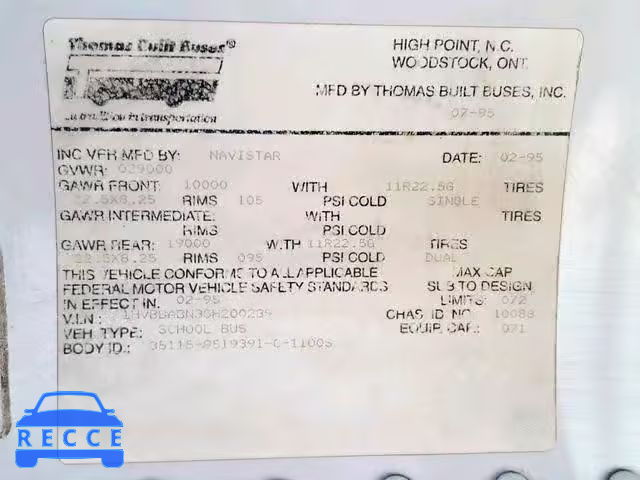 Thomas Built Buses®
in transportation
HIGH POINT, N.C.
WOODSTOCK, ONT.
MFD BY THOMAS BUILT BUSES, INC.
07-95
INC VEH MFD BY: NAVISTAR DATE: 02-95
GVWR: 029000
GAWR FRONT: 10000 WITH 11R22.5G TIRES
22.5X8.25 RIMS 105 PSI COLD SINGLE
GAWR INTERMEDIATE: WITH TIRES
RIMS PSI COLD
GAWR REAR: 19000 WITH 11R22.5G TIRES
22.5X8.25 RIMS 095 PSI COLD DUAL
THIS VEHICLE CONFORMS TO ALL APPLICABLE MAX CAP
FEDERAL MOTOR VEHICLE SAFETY STANDARDS SUB TO DESIGN
IN EFFECT IN. 02-95 LIMITS: 072
V.I.N.: CHAS. ID NO. 10088
VEH TYPE: SCHOOL BUS EQUIP. CAP.: 071
BODY ID.:
RECCE